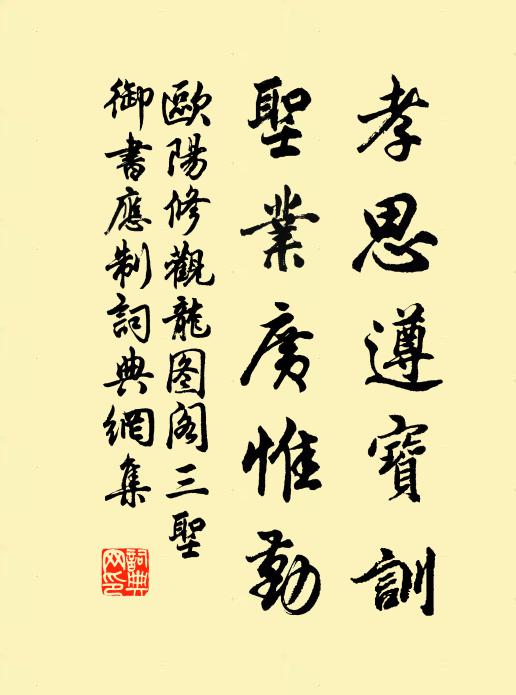 孝思遵寶訓
聖業廣惟勤
歐陽修觀龍图阁三聖
御書應制詞典網集
詞典网印